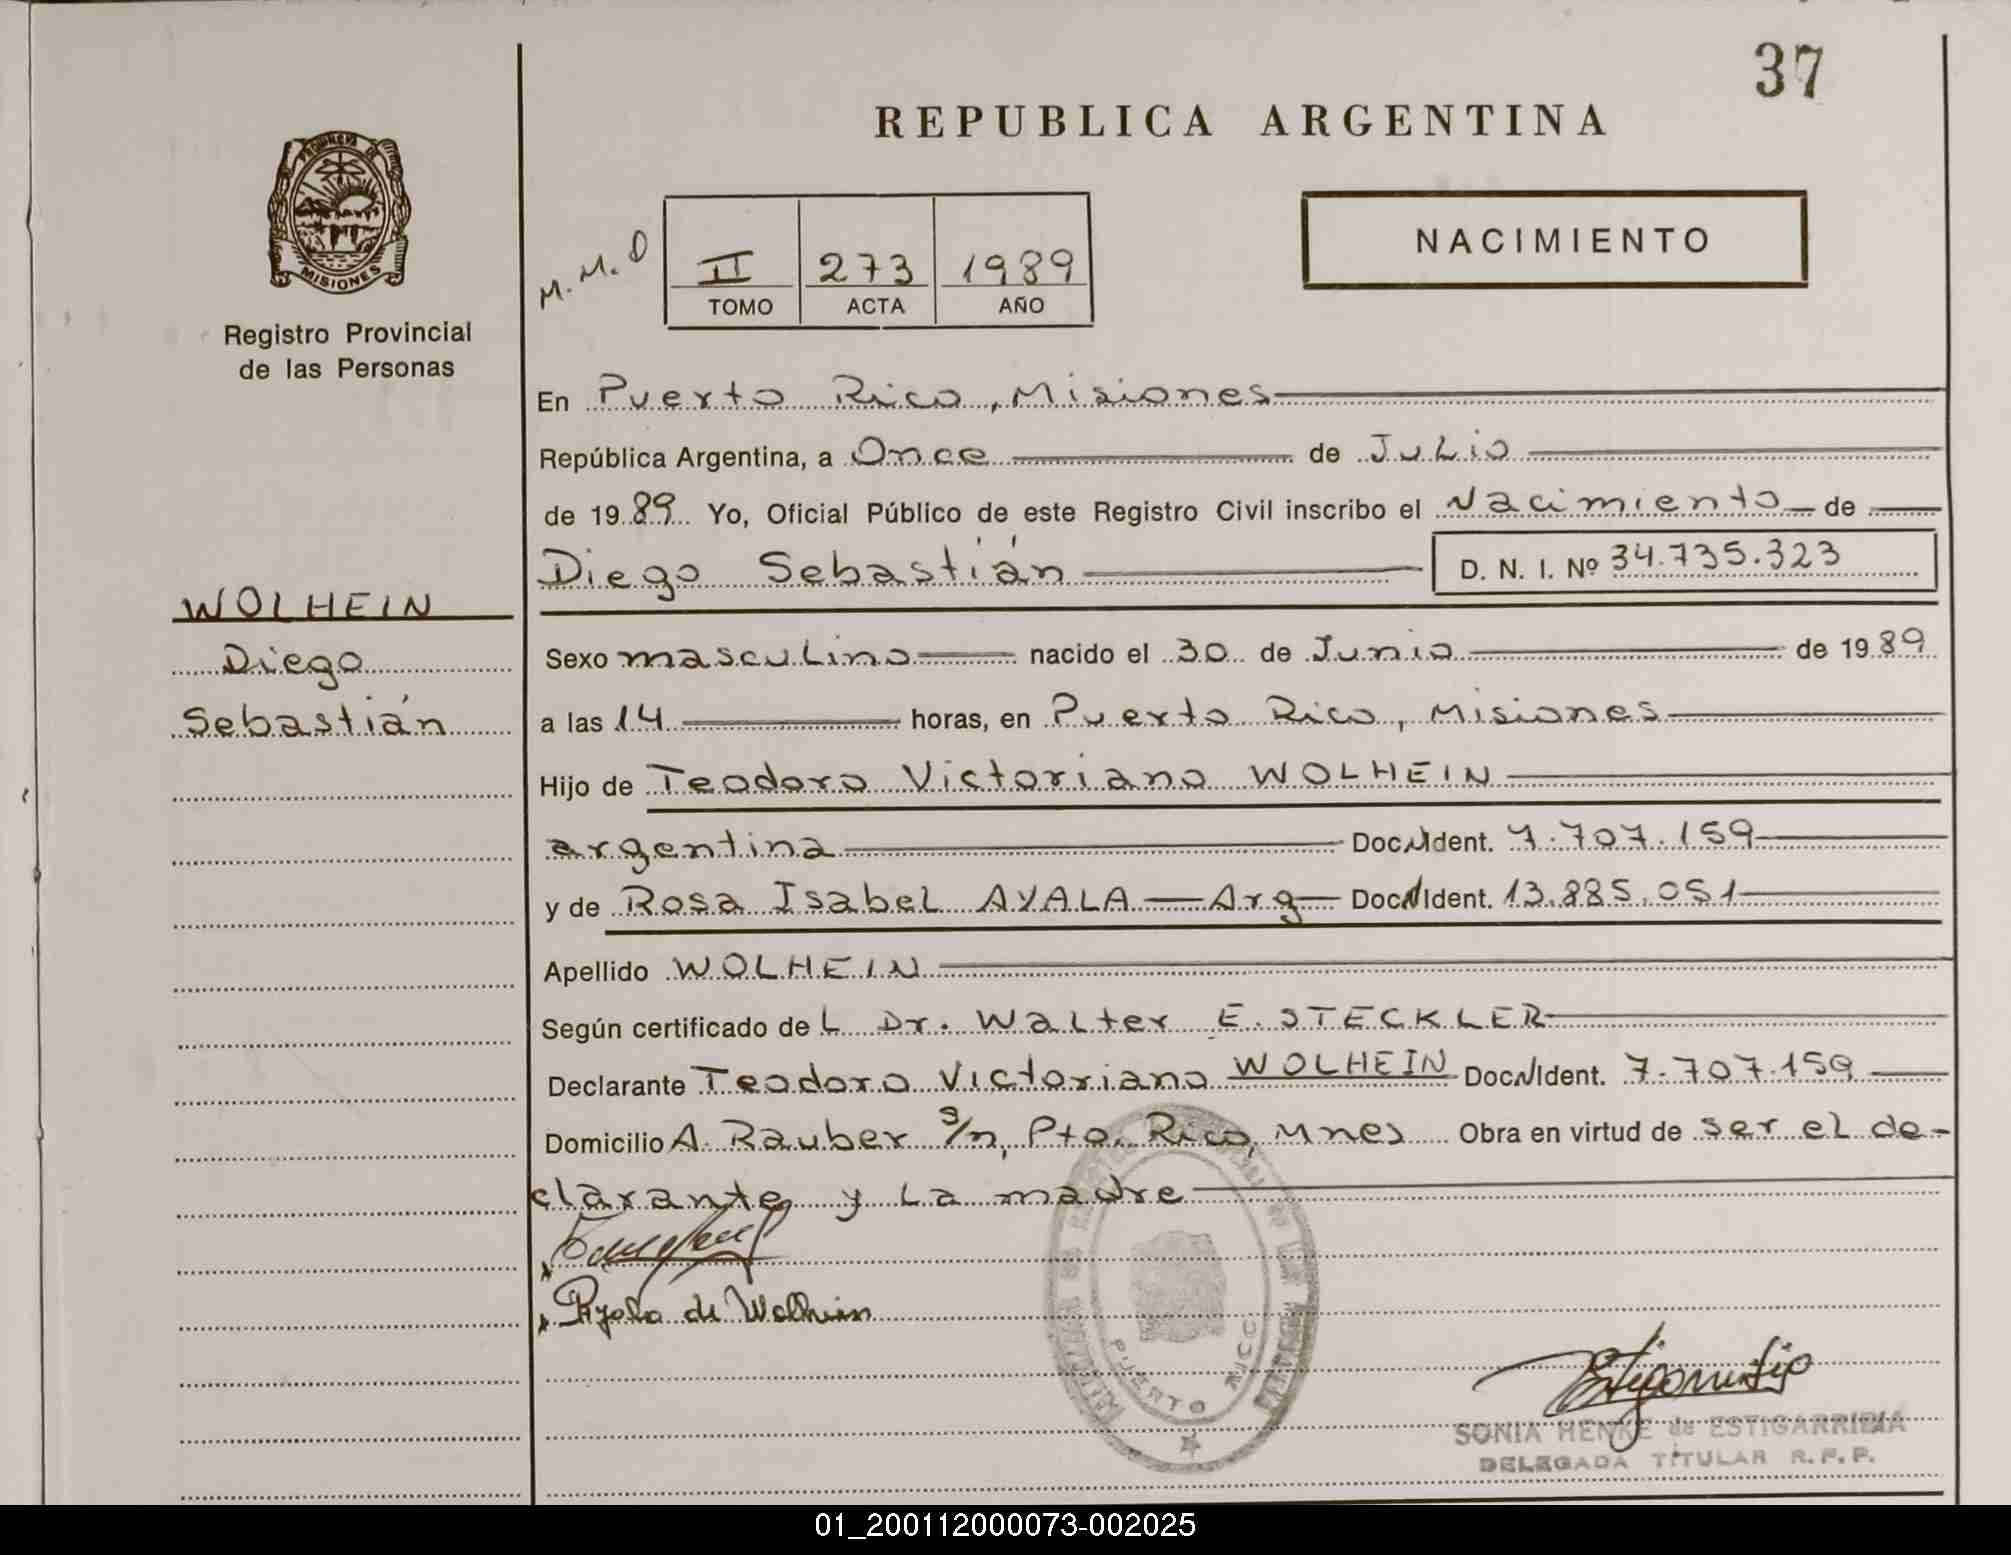 37
REPUBLICA ARGENTINA
PROVINCIA DE
MISIONES
Registro Provincial
de las Personas
M. M. D
II 273 1989
TOMO ACTA AÑO
NACIMIENTO
En Puerto Rico, Misiones
República Argentina, a Once de Julio
de 1989 Yo, Oficial Público de este Registro Civil inscribo el Nacimiento de
Diego Sebastián D. N. I. Nº 34.735.323
WOLHEIN
Diego
Sebastián
Sexo masculino nacido el 30 de Junio de 1989
a las 14 horas, en Puerto Rico, Misiones
Hijo de Teodoro Victoriano WOLHEIN
argentina Doc. Ident. 7.707.159
y de Rosa Isabel AYALA — Arg — Doc. Ident. 13.885.051
Apellido WOLHEIN
Según certificado de L Dr. Walter E. STECKLER
Declarante Teodoro Victoriano WOLHEIN Doc. Ident. 7.707.159
Domicilio A. Rauber s/n, Pto. Rico, Mnes Obra en virtud de ser el de-
clarante y La madre
de Wolhein
PUERTO RICO
SONIA HENKE de ESTIGARRIBIA
DELEGADA TITULAR R.P.P.
01_200112000073-002025